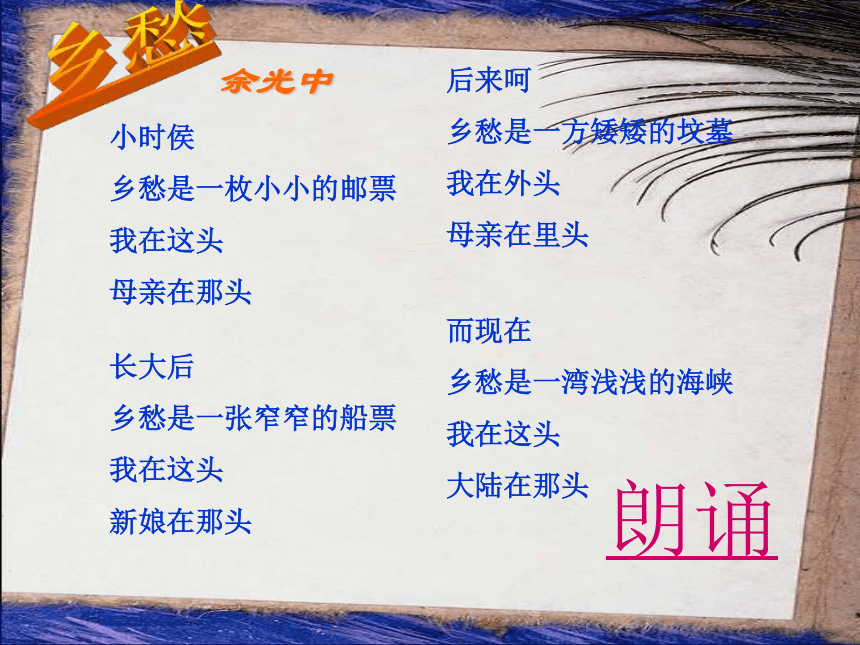 乡愁
余光中
小时侯
乡愁是一枚小小的邮票
我在这头
母亲在那头
长大后
乡愁是一张窄窄的船票
我在这头
新娘在那头
后来呵
乡愁是一方矮矮的坟墓
我在外头
母亲在里头
而现在
乡愁是一湾浅浅的海峡
我在这头
大陆在那头
朗诵